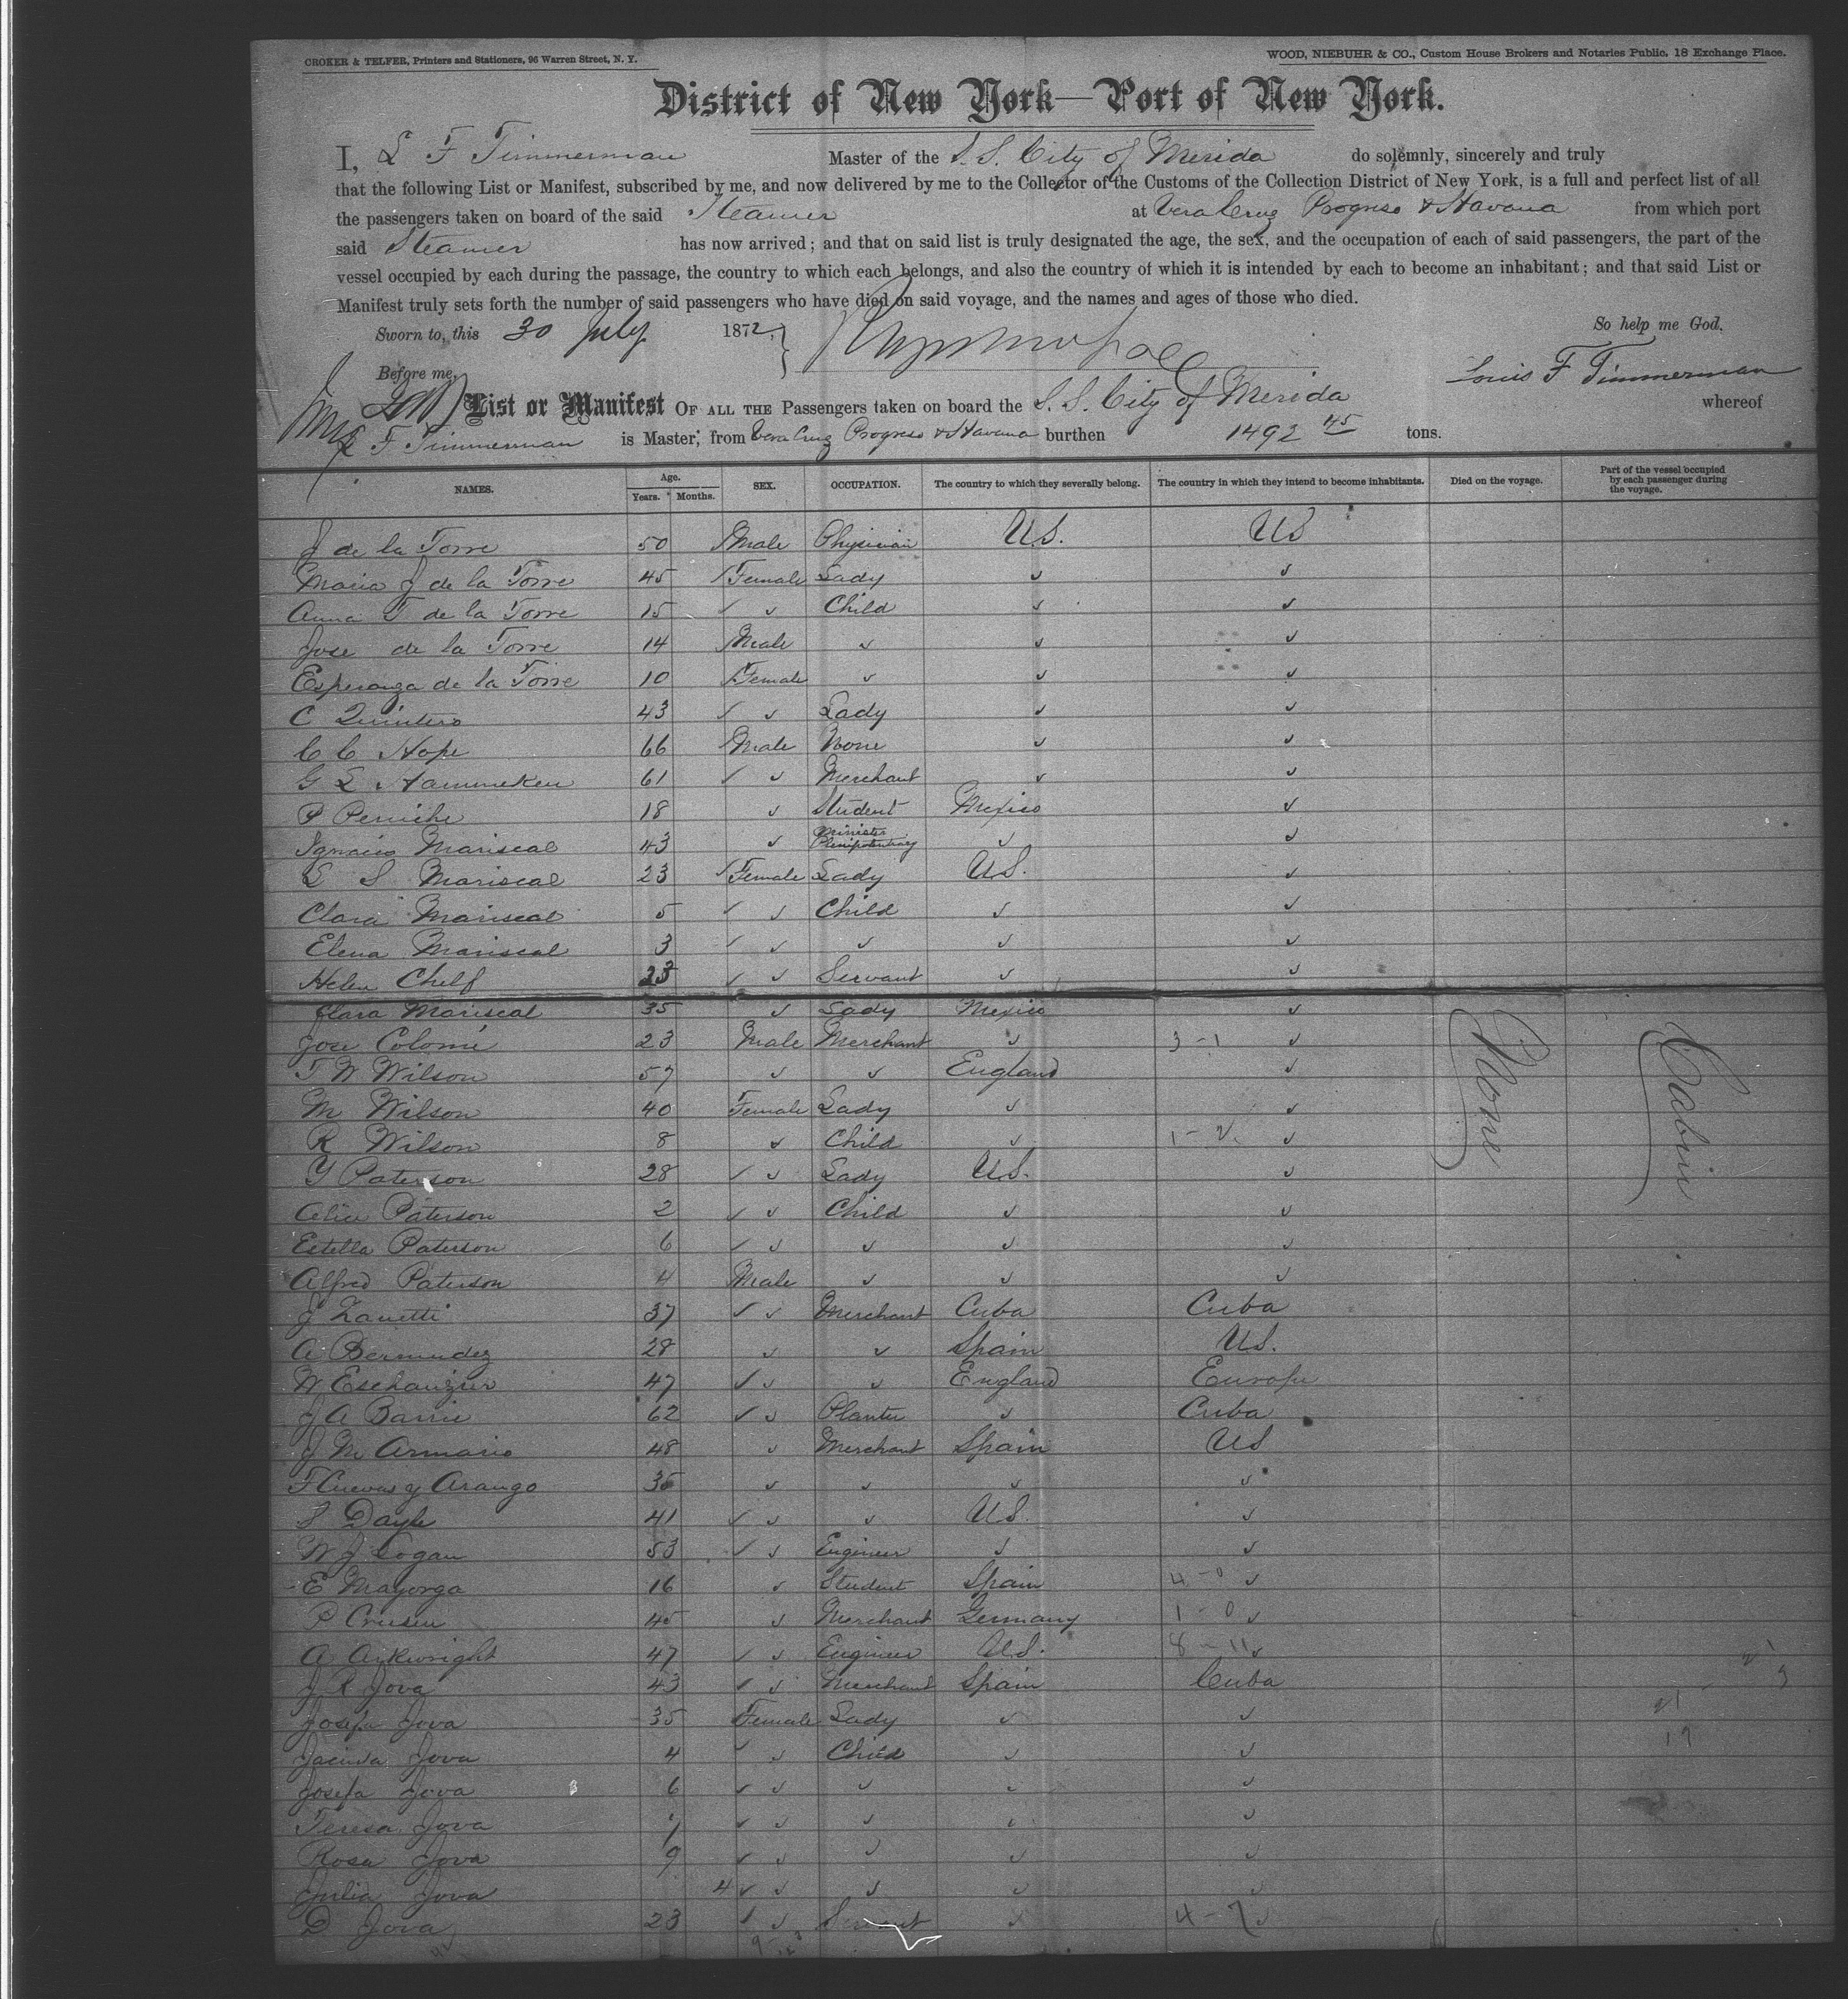 CROKER & TELFER, Printers and Stationers, 96 Warren Street, N. Y.
WOOD, NIEBUHR & CO., Custom House Brokers and Notaries Public, 18 Exchange Place.
District of New York—Port of New York.
I, L F Timmerman Master of the S.S. City of Merida do solemnly, sincerely and truly
that the following List or Manifest, subscribed by me, and now delivered by me to the Collector of the Customs of the Collection District of New York, is a full and perfect list of all
the passengers taken on board of the said Steamer at Vera Cruz Progreso & Havana from which port
said Steamer has now arrived; and that on said list is truly designated the age, the sex, and the occupation of each of said passengers, the part of the
vessel occupied by each during the passage, the country to which each belongs, and also the country of which it is intended by each to become an inhabitant; and that said List or
Manifest truly sets forth the number of said passengers who have died on said voyage, and the names and ages of those who died.
Sworn to, this 30 July 1872, So help me God.
Before me, Louis F Timmerman
List or Manifest OF ALL THE Passengers taken on board the S.S. City of Merida whereof
L F Timmerman is Master, from Vera Cruz Progreso & Havana burthen 1492 45 tons.
NAMES. Age. Years. Months. SEX. OCCUPATION. The country to which they severally belong. The country in which they intend to become inhabitants. Died on the voyage. Part of the vessel occupied by each passenger during the voyage.
J de la Torre 50 ✓ Male Physician U.S. US
Maria J de la Torre 45 ✓ Female Lady ✓ ✓
Anna T de la Torre 15 ✓ ✓ Child ✓ ✓
Jose de la Torre 14 ✓ Male ✓ ✓ ✓
Esperanza de la Torre 10 ✓ Female ✓ ✓ ✓
C Quintero 43 ✓ ✓ Lady ✓ ✓
C C Hope 66 ✓ Male None ✓ ✓
G L Hammeken 61 ✓ ✓ Merchant ✓ ✓
P Peniche 18 ✓ Student Mexico ✓
Ignacio Mariscal 43 ✓ Minister Plenipotentiary ✓ ✓
L S Mariscal 23 ✓ Female Lady U.S. ✓
Clara Mariscal 5 ✓ ✓ Child ✓ ✓
Elena Mariscal 3 ✓ ✓ ✓ ✓ ✓
Helen Chelf 23 ✓ ✓ Servant ✓ ✓
Clara Mariscal 35 ✓ Lady Mexico ✓
Jose Colomé 23 Male Merchant ✓ 3-1 ✓
T W Wilson 57 ✓ ✓ England ✓
M Wilson 40 Female Lady ✓ ✓
R Wilson 8 ✓ Child ✓ 1-2 ✓
Y Paterson 28 ✓ ✓ Lady U.S. ✓
Alice Paterson 2 ✓ ✓ Child ✓ ✓
Estella Paterson 6 ✓ ✓ ✓ ✓ ✓
Alfred Paterson 4 Male ✓ ✓ ✓
None Cabin
J Zanetti 37 ✓ ✓ Merchant Cuba Cuba
A Bermudez 28 ✓ ✓ Spain U.S.
W Eschauzier 47 ✓ ✓ ✓ England Europe
J A Barrie 62 ✓ ✓ Planter ✓ Cuba
J M Armario 48 ✓ Merchant Spain US
F Cuevas y Arango 35 ✓ ✓ ✓ ✓
S Dayle 41 ✓ ✓ ✓ U.S. ✓
W J Logan 53 ✓ ✓ Engineer ✓ ✓
E Mayorga 16 ✓ Student Spain 4-0 ✓
P Crusen 45 ✓ Merchant Germany 1-0 ✓
A Arkwright 47 ✓ ✓ Engineer U.S. 8-11 ✓
J R Jova 43 ✓ ✓ Merchant Spain Cuba
Josefa Jova 35 Female Lady ✓ ✓
Jacinta Jova 4 ✓ ✓ Child ✓ ✓
Josefa Jova 6 ✓ ✓ ✓ ✓ ✓
Teresa Jova 7 ✓ ✓ ✓ ✓ ✓
Rosa Jova 9 ✓ ✓ ✓ ✓ ✓
Julia Jova 4 ✓ ✓ ✓ ✓ ✓
D Jova 23 ✓ ✓ Servant ✓ 4-7 ✓